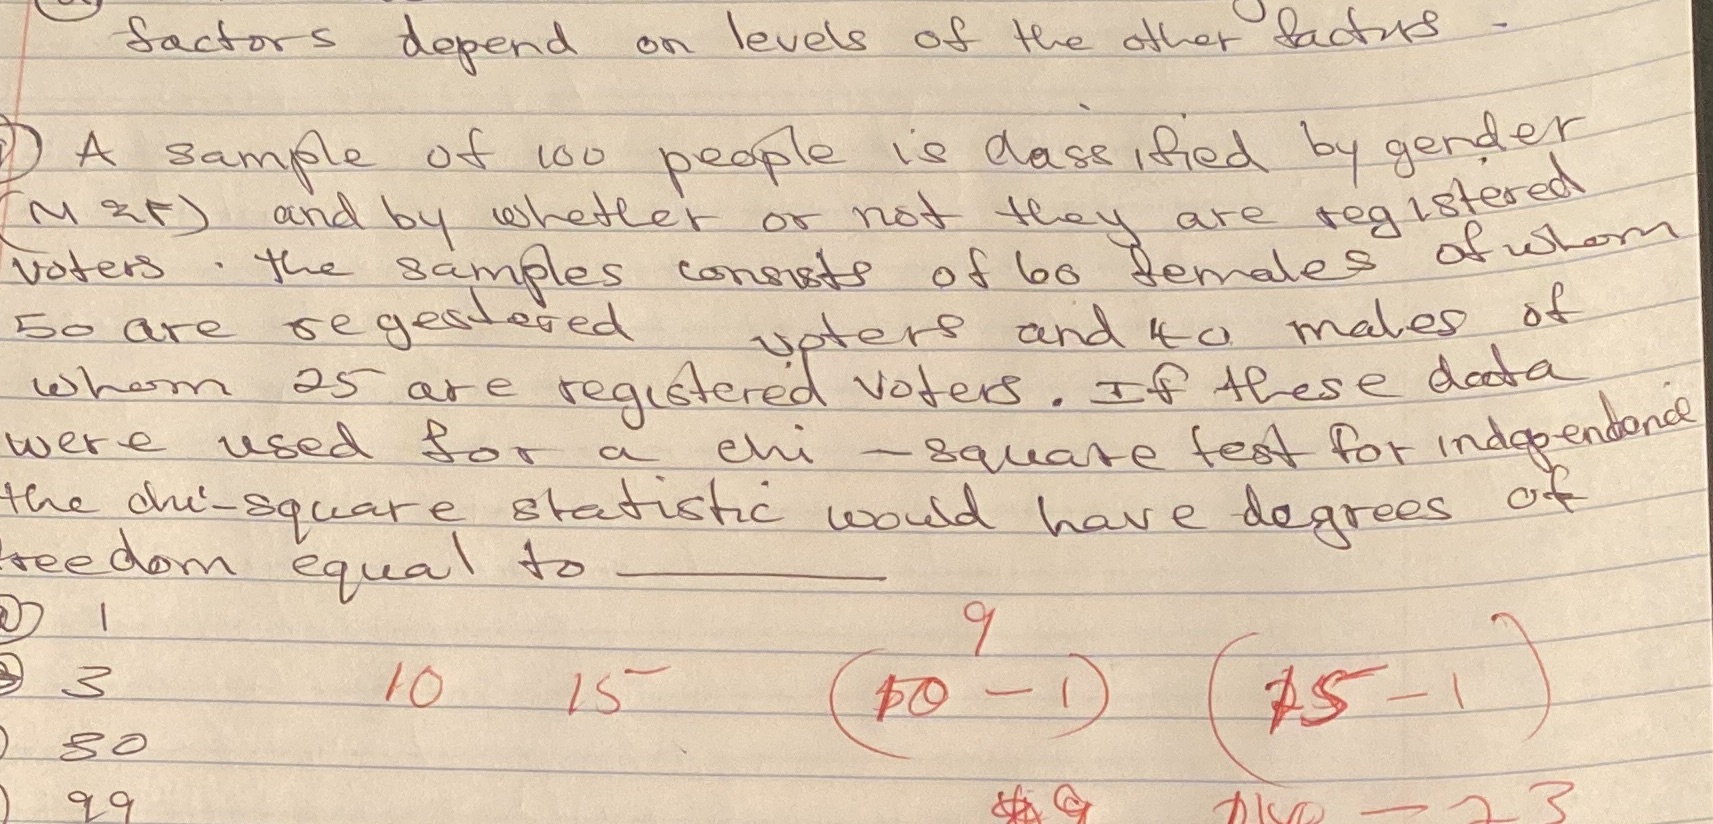 factors depend on levels of the other factors -
A sample of 100 people is classified by gender
(M & F) and by whether or not they are registered
voters. the samples consists of 60 females of whom
50 are regestered voters and 40 males of
whom 25 are registered voters. If these data
were used for a chi-square test for independance
the chi-square statistic would have degrees of
reedom equal to ______
1
9
3 10 15 (10 - 1) (15 - 1)
80
99 9 - 23